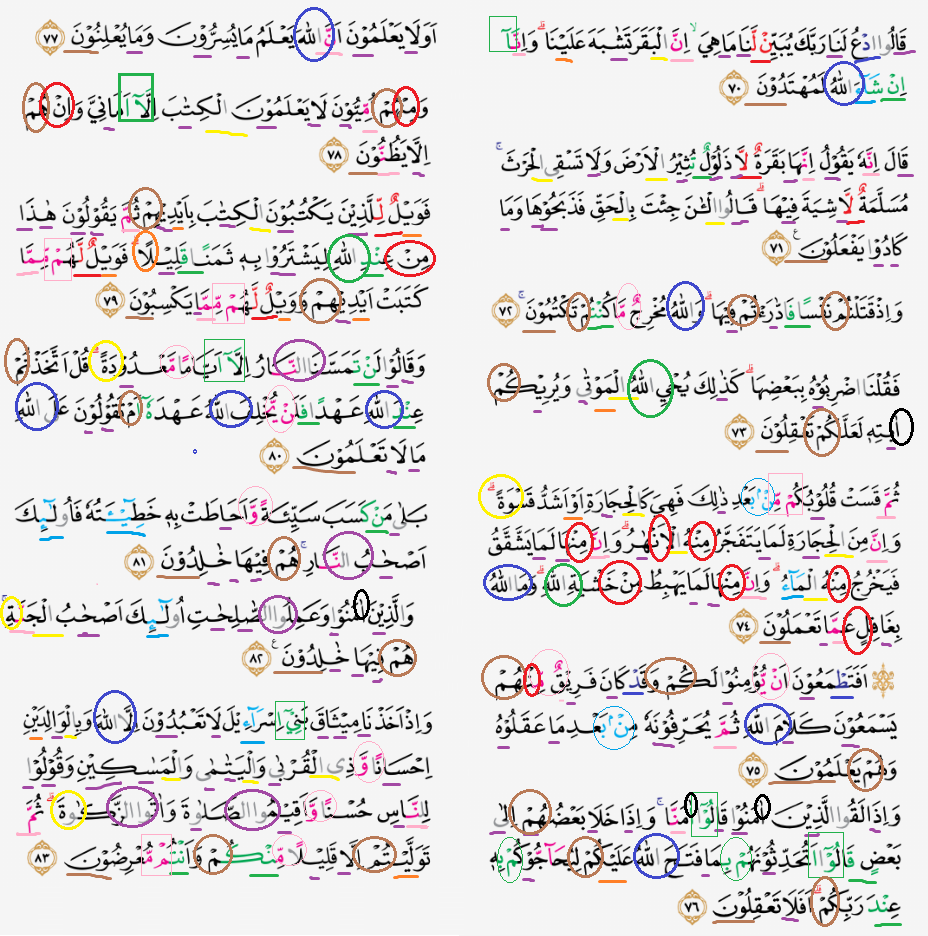 قَالُوا ادْعُ لَنَا رَبَّكَ يُبَيِّنْ لَّنَا مَا هِيَۙ اِنَّ الْبَقَرَ تَشٰبَهَ عَلَيْنَاۗ وَاِنَّآ
اِنْ شَاۤءَ اللّٰهُ لَمُهْتَدُوْنَ ٧٠
قَالَ اِنَّهٗ يَقُوْلُ اِنَّهَا بَقَرَةٌ لَّا ذَلُوْلٌ تُثِيْرُ الْاَرْضَ وَلَا تَسْقِى الْحَرْثَۚ
مُسَلَّمَةٌ لَّا شِيَةَ فِيْهَاۗ قَالُوا الْـٰٔنَ جِئْتَ بِالْحَقِّ فَذَبَحُوْهَا وَمَا
كَادُوْا يَفْعَلُوْنَࣖ ٧١
وَاِذْ قَتَلْتُمْ نَفْسًا فَادّٰرَءْتُمْ فِيْهَاۗ وَاللّٰهُ مُخْرِجٌ مَّا كُنْتُمْ تَكْتُمُوْنَۚ ٧٢
فَقُلْنَا اضْرِبُوْهُ بِبَعْضِهَاۗ كَذٰلِكَ يُحْيِ اللّٰهُ الْمَوْتٰى وَيُرِيْكُمْ
اٰيٰتِهٖ لَعَلَّكُمْ تَعْقِلُوْنَ ٧٣
ثُمَّ قَسَتْ قُلُوْبُكُمْ مِّنْۢ بَعْدِ ذٰلِكَ فَهِيَ كَالْحِجَارَةِ اَوْ اَشَدُّ قَسْوَةًۗ
وَاِنَّ مِنَ الْحِجَارَةِ لَمَا يَتَفَجَّرُ مِنْهُ الْاَنْهٰرُۗ وَاِنَّ مِنْهَا لَمَا يَشَّقَّقُ
فَيَخْرُجُ مِنْهُ الْمَاۤءُۗ وَاِنَّ مِنْهَا لَمَا يَهْبِطُ مِنْ خَشْيَةِ اللّٰهِۗ وَمَا اللّٰهُ
بِغَافِلٍ عَمَّا تَعْمَلُوْنَ ٧٤
۞ اَفَتَطْمَعُوْنَ اَنْ يُّؤْمِنُوْا لَكُمْ وَقَدْ كَانَ فَرِيْقٌ مِّنْهُمْ
يَسْمَعُوْنَ كَلَامَ اللّٰهِ ثُمَّ يُحَرِّفُوْنَهٗ مِنْۢ بَعْدِ مَا عَقَلُوْهُ
وَهُمْ يَعْلَمُوْنَ ٧٥
وَاِذَا لَقُوا الَّذِيْنَ اٰمَنُوْا قَالُوْٓا اٰمَنَّاۚ وَاِذَا خَلَا بَعْضُهُمْ اِلٰى
بَعْضٍ قَالُوْٓا اَتُحَدِّثُوْنَهُمْ بِمَا فَتَحَ اللّٰهُ عَلَيْكُمْ لِيُحَاۤجُّوْكُمْ بِهٖ
عِنْدَ رَبِّكُمْۗ اَفَلَا تَعْقِلُوْنَ ٧٦
اَوَلَا يَعْلَمُوْنَ اَنَّ اللّٰهَ يَعْلَمُ مَا يُسِرُّوْنَ وَمَا يُعْلِنُوْنَ ٧٧
وَمِنْهُمْ اُمِّيُّوْنَ لَا يَعْلَمُوْنَ الْكِتٰبَ اِلَّآ اَمَانِيَّ وَاِنْ هُمْ
اِلَّا يَظُنُّوْنَ ٧٨
فَوَيْلٌ لِّلَّذِيْنَ يَكْتُبُوْنَ الْكِتٰبَ بِاَيْدِيْهِمْ ثُمَّ يَقُوْلُوْنَ هٰذَا
مِنْ عِنْدِ اللّٰهِ لِيَشْتَرُوْا بِهٖ ثَمَنًا قَلِيْلًاۗ فَوَيْلٌ لَّهُمْ مِّمَّا
كَتَبَتْ اَيْدِيْهِمْ وَوَيْلٌ لَّهُمْ مِّمَّا يَكْسِبُوْنَ ٧٩
وَقَالُوْا لَنْ تَمَسَّنَا النَّارُ اِلَّآ اَيَّامًا مَّعْدُوْدَةًۗ قُلْ اَتَّخَذْتُمْ
عِنْدَ اللّٰهِ عَهْدًا فَلَنْ يُّخْلِفَ اللّٰهُ عَهْدَهٗٓ اَمْ تَقُوْلُوْنَ عَلَى اللّٰهِ
مَا لَا تَعْلَمُوْنَ ٨٠
بَلٰى مَنْ كَسَبَ سَيِّئَةً وَّاَحَاطَتْ بِهٖ خَطِيْۤـَٔتُهٗ فَاُولٰۤىِٕكَ
اَصْحٰبُ النَّارِۚ هُمْ فِيْهَا خٰلِدُوْنَ ٨١
وَالَّذِيْنَ اٰمَنُوْا وَعَمِلُوا الصّٰلِحٰتِ اُولٰۤىِٕكَ اَصْحٰبُ الْجَنَّةِۚ
هُمْ فِيْهَا خٰلِدُوْنَࣖ ٨٢
وَاِذْ اَخَذْنَا مِيْثَاقَ بَنِيْٓ اِسْرَاۤءِيْلَ لَا تَعْبُدُوْنَ اِلَّا اللّٰهَ وَبِالْوَالِدَيْنِ
اِحْسَانًا وَّذِى الْقُرْبٰى وَالْيَتٰمٰى وَالْمَسٰكِيْنِ وَقُوْلُوْا
لِلنَّاسِ حُسْنًا وَّاَقِيْمُوا الصَّلٰوةَ وَاٰتُوا الزَّكٰوةَۗ ثُمَّ
تَوَلَّيْتُمْ اِلَّا قَلِيْلًا مِّنْكُمْ وَاَنْتُمْ مُّعْرِضُوْنَ ٨٣